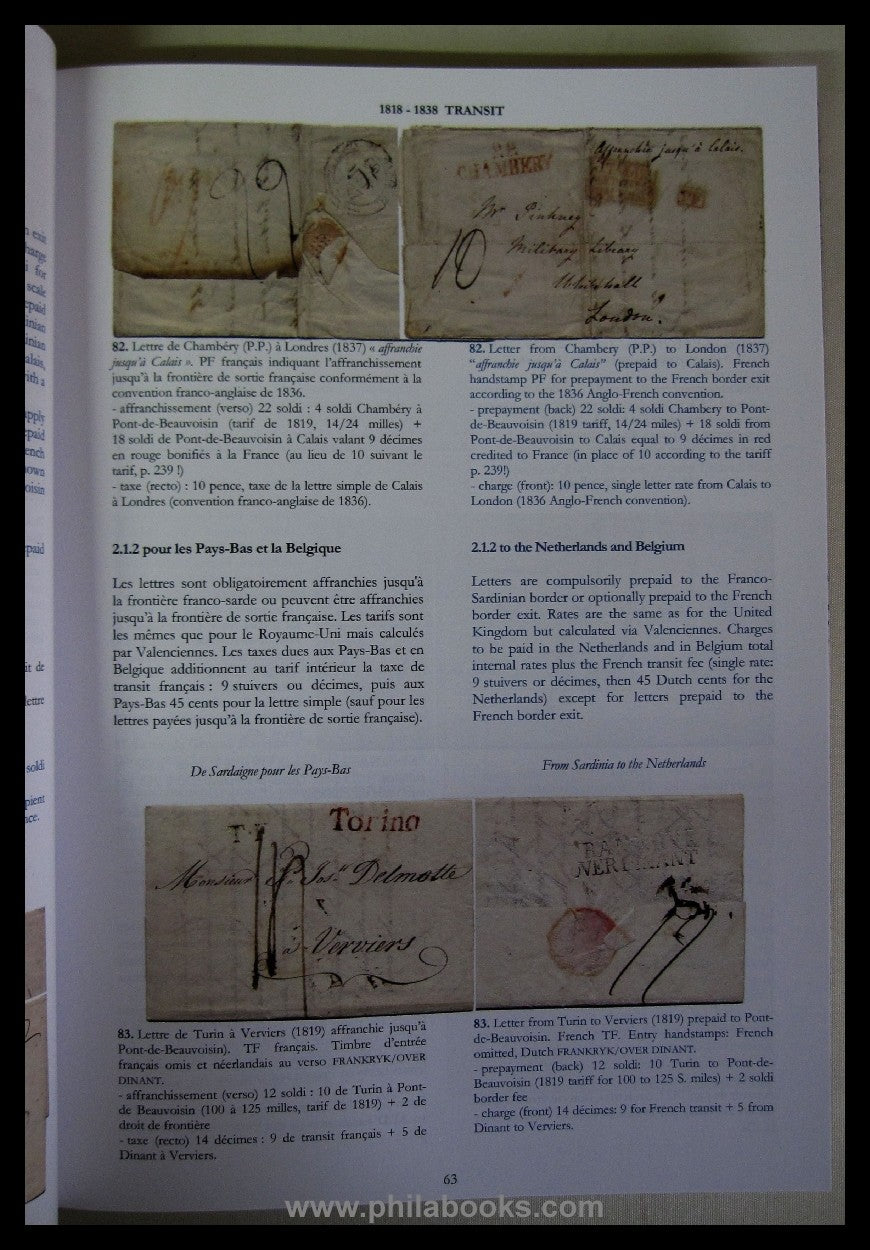 1818 - 1838 TRANSIT
P.P.
CHAMBERY
Affranchie jusqu'à Calais.
Mr Pinkney
Military Library
Whitehall
London.
10
82. Lettre de Chambéry (P.P.) à Londres (1837) « affranchie
jusqu'à Calais ». PF français indiquant l'affranchissement
jusqu'à la frontière de sortie française conformément à la
convention franco-anglaise de 1836.
- affranchissement (verso) 22 soldi : 4 soldi Chambéry à
Pont-de-Beauvoisin (tarif de 1819, 14/24 milles) +
18 soldi de Pont-de-Beauvoisin à Calais valant 9 décimes
en rouge bonifiés à la France (au lieu de 10 suivant le
tarif, p. 239 !)
- taxe (recto) : 10 pence, taxe de la lettre simple de Calais
à Londres (convention franco-anglaise de 1836).
82. Letter from Chambery (P.P.) to London (1837)
"affranchie jusqu'à Calais" (prepaid to Calais). French
handstamp PF for prepayment to the French border exit
according to the 1836 Anglo-French convention.
- prepayment (back) 22 soldi: 4 soldi Chambery to Pont-
de-Beauvoisin (1819 tariff, 14/24 miles) + 18 soldi from
Pont-de-Beauvoisin to Calais equal to 9 décimes in red
credited to France (in place of 10 according to the tariff
p. 239!)
- charge (front): 10 pence, single letter rate from Calais to
London (1836 Anglo-French convention).
2.1.2 pour les Pays-Bas et la Belgique
Les lettres sont obligatoirement affranchies jusqu'à
la frontière franco-sarde ou peuvent être affranchies
jusqu'à la frontière de sortie française. Les tarifs sont
les mêmes que pour le Royaume-Uni mais calculés
par Valenciennes. Les taxes dues aux Pays-Bas et en
Belgique additionnent au tarif intérieur la taxe de
transit français : 9 stuivers ou décimes, puis aux
Pays-Bas 45 cents pour la lettre simple (sauf pour les
lettres payées jusqu'à la frontière de sortie française).
2.1.2 to the Netherlands and Belgium
Letters are compulsorily prepaid to the Franco-
Sardinian border or optionally prepaid to the French
border exit. Rates are the same as for the United
Kingdom but calculated via Valenciennes. Charges
to be paid in the Netherlands and in Belgium total
internal rates plus the French transit fee (single rate:
9 stuivers or décimes, then 45 Dutch cents for the
Netherlands) except for letters prepaid to the
French border exit.
De Sardaigne pour les Pays-Bas
From Sardinia to the Netherlands
Torino
Monsieur
Delmotte
à Verviers
83. Lettre de Turin à Verviers (1819) affranchie jusqu'à
Pont-de-Beauvoisin). TF français. Timbre d'entrée
français omis et néerlandais au verso FRANKRYK/OVER
DINANT.
- affranchissement (verso) 12 soldi : 10 de Turin à Pont-
de Beauvoisin (100 à 125 milles, tarif de 1819) + 2 de
droit de frontière
- taxe (recto) 14 décimes : 9 de transit français + 5 de
Dinant à Verviers.
83. Letter from Turin to Verviers (1819) prepaid to Pont-
de-Beauvoisin. French TF. Entry handstamps: French
omitted, Dutch FRANKRYK/OVER DINANT.
- prepayment (back) 12 soldi: 10 Turin to Pont-de-
Beauvoisin (1819 tariff for 100 to 125 S. miles) + 2 soldi
border fee
- charge (front) 14 décimes: 9 for French transit + 5 from
Dinant to Verviers.
63
www.philabooks.com